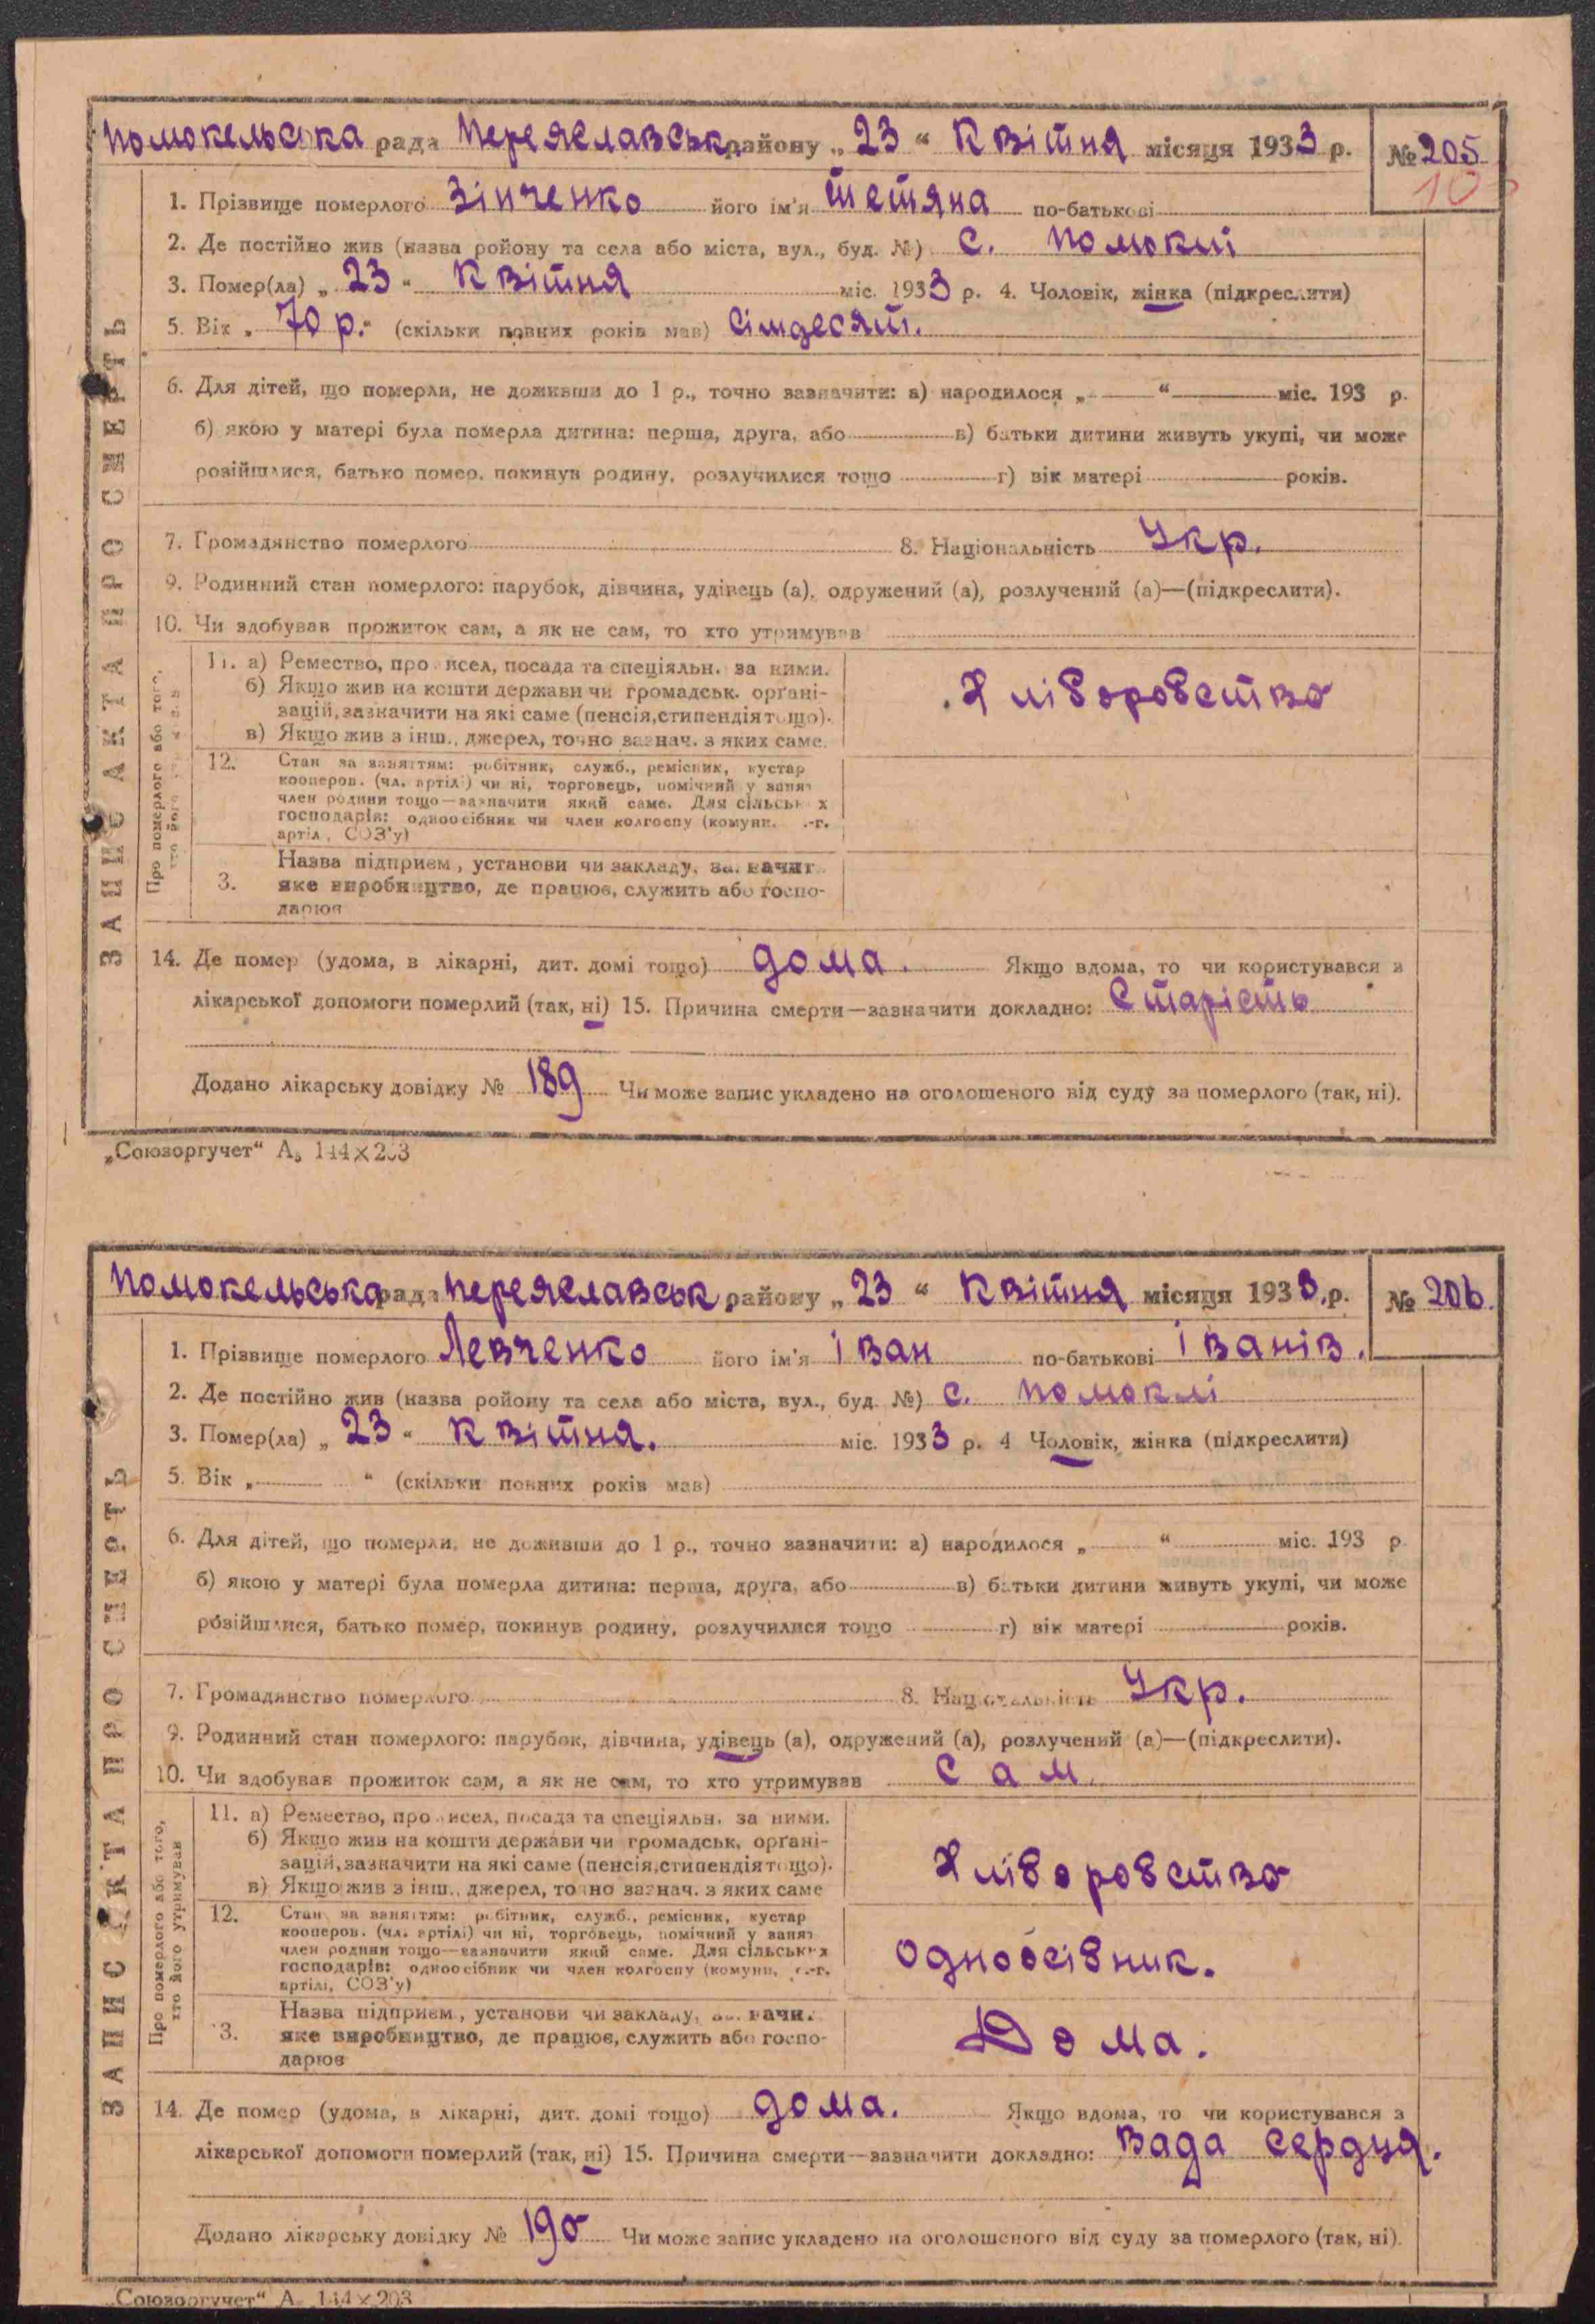 Помокельська рада Переяславськ району „ 23 “ Квітня місяця 1933 р. № 205
10
1. Прізвище померлого Зінченко його ім'я Тетяна по-батькові
2. Де постійно жив (назва ройону та села або міста, вул., буд. №) с. Помоклі
3. Помер(ла) „ 23 “ Квітня міс. 1933 р. 4. Чоловік, жінка (підкреслити)
5. Вік „ 70 р. “ (скільки повних років мав) Сімдесят.
6. Для дітей, що померли, не доживши до 1 р., точно зазначити: а) народилося „ “ міс. 193 р.
б) якою у матері була померла дитина: перша, друга, або в) батьки дитини живуть укупі, чи може
розійшлися, батько помер, покинув родину, розлучилися тощо г) вік матері років.
7. Громадянство померлого 8. Національність Укр.
9. Родинний стан померлого: парубок, дівчина, удівець (а), одружений (а), розлучений (а)—(підкреслити).
10. Чи здобував прожиток сам, а як не сам, то хто утримував
ЗАПИС АКТА ПРО СМЕРТЬ
Про померлого або того,
хто його
11. а) Ремество, про исел, посада та спеціяльн. за ними.
б) Якщо жив на кошти держави чи громадськ. орґані-
зацій, зазначити на які саме (пенсія, стипендія тощо).
в) Якщо жив з інш., джерел, точно зазнач. з яких саме.
Хліборобство
12. Стан за заняттям: робітник, служб., ремісник, кустар
кооперов. (чл. артілі) чи ні, торговець, помічний у занят
член родини тощо—зазначити який саме. Для сільськ х
господарів: одноосібник чи член колгоспу (комуни, .-г.
артіл, СОЗ'у)
3. Назва підприєм, установи чи закладу, за начит
яке виробництво, де працює, служить або госпо-
дарює
14. Де помер (удома, в лікарні, дит. домі тощо) дома. Якщо вдома, то чи користувався з
лікарської допомоги померлий (так, ні) 15. Причина смерти—зазначити докладно: Старість
Додано лікарську довідку № 189 Чи може запис укладено на оголошеного від суду за померлого (так, ні).
„Союзоргучет“ А5 144×203
Помокельська рада Переяславськ району „ 23 “ Квітня місяця 1933. р. № 206.
1. Прізвище померлого Левченко його ім'я Іван по-батькові Іванів.
2. Де постійно жив (назва ройону та села або міста, вул., буд. №) с. Помоклі
3. Помер(ла) „ 23 “ Квітня. міс. 1933 р. 4 Чоловік, жінка (підкреслити)
5. Вік „ “ (скільки повних років мав)
6. Для дітей, що померли, не доживши до 1 р., точно зазначити: а) народилося „ “ міс. 193 р.
б) якою у матері була померла дитина: перша, друга, або в) батьки дитини живуть укупі, чи може
розійшлися, батько помер, покинув родину, розлучилися тощо г) вік матері років.
7. Громадянство померлого 8. Національність Укр.
9. Родинний стан померлого: парубок, дівчина, удівець (а), одружений (а), розлучений (а)—(підкреслити).
10. Чи здобував прожиток сам, а як не сам, то хто утримував Сам.
ЗАПИС АКТА ПРО СМЕРТЬ
Про померлого або того,
хто його утримував
11. а) Ремество, про исел, посада та спеціяльн. за ними.
б) Якщо жив на кошти держави чи громадськ, орґані-
зацій, зазначити на які саме (пенсія, стипендія тощо).
в) Якщо жив з інш., джерел, точно зазнач. з яких саме
Хліборобство
12. Стан за заняттям: робітник, служб., ремісник, кустар
кооперов. (чл. артілі) чи ні, торговець, помічний у занят
член родини тощо—зазначити який саме. Для сільськ х
господарів: одноосібник чи член колгоспу (комуни, с.-г.
артілі, СОЗ'у)
одноосібник.
3. Назва підприєм, установи чи закладу, за начи.
яке виробництво, де працює, служить або госпо-
дарює
Дома.
14. Де помер (удома, в лікарні, дит. домі тощо) дома. Якщо вдома, то чи користувався з
лікарської допомоги померлий (так, ні) 15. Причина смерти—зазначити докладно: Вада сердця.
Додано лікарську довідку № 190 Чи може запис укладено на оголошеного від суду за померлого (так, ні).
„Союзоргучет“ А 144×203